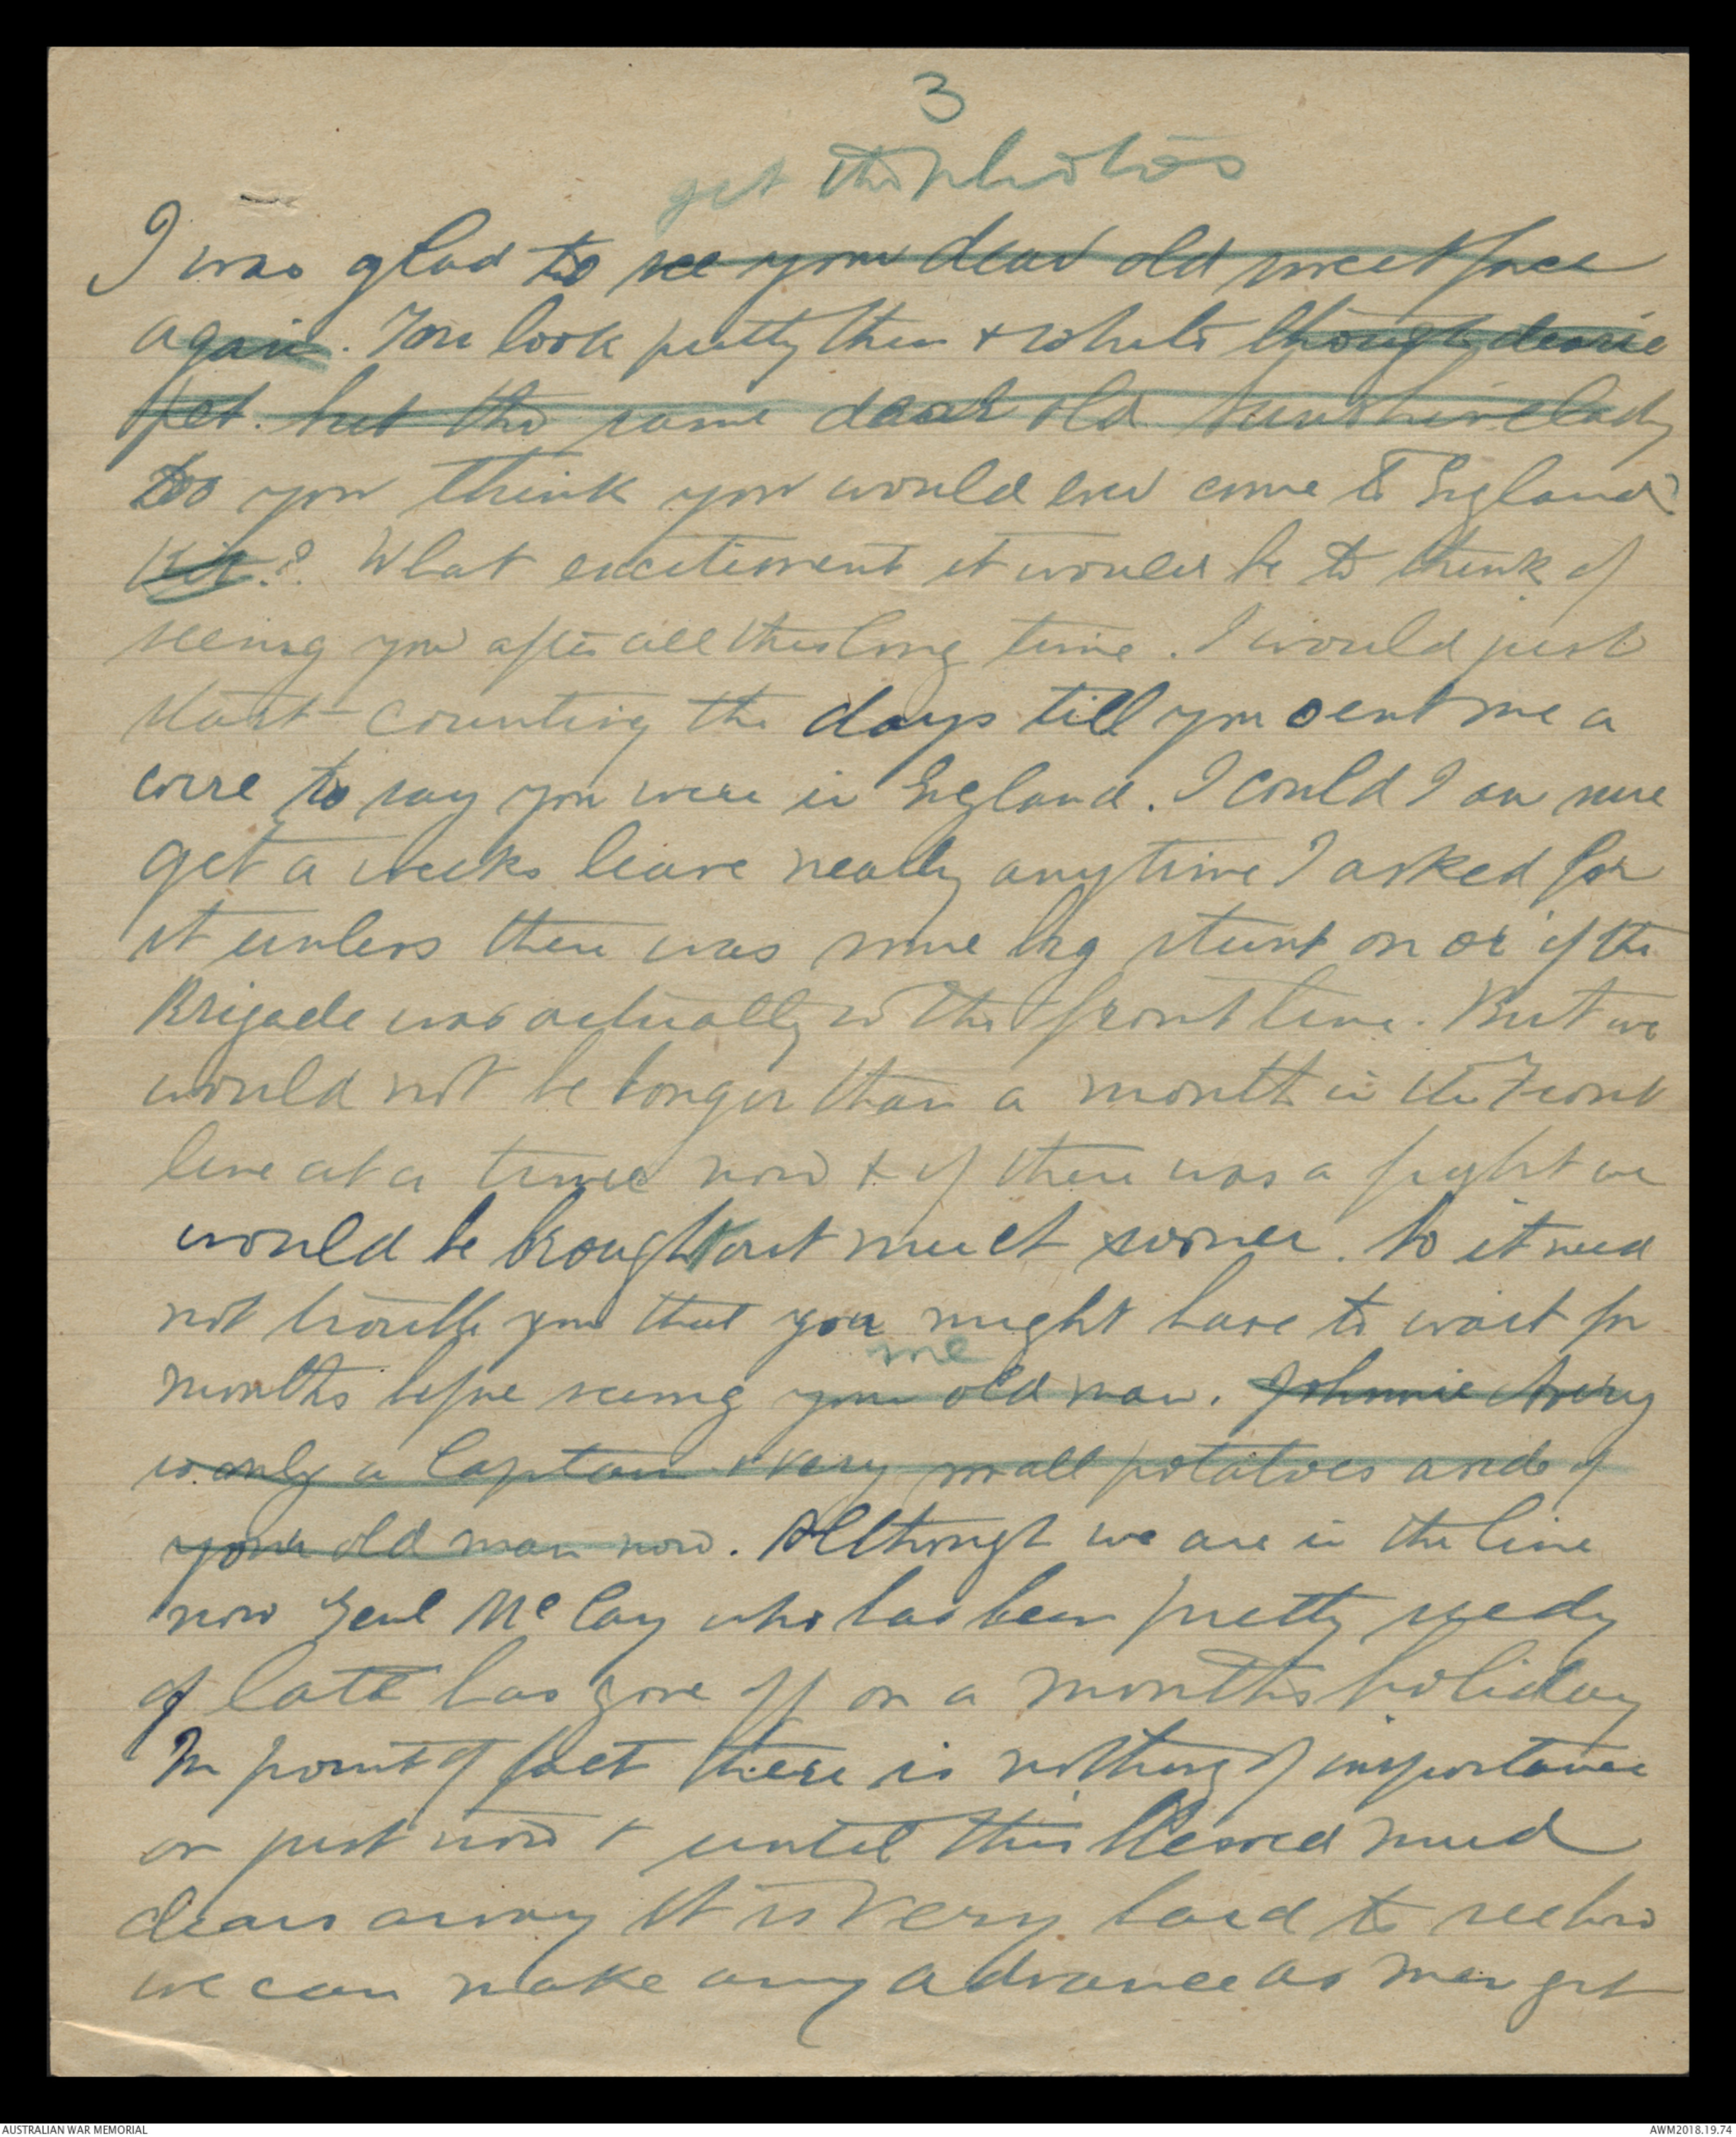 3
get the photos
I was glad to see your dear old sweet face
again. You look pretty thin & white though dearie
yet. but the same dear old sunshine lady
Do you think you would ever come to England
Kit? What excitement it would be to think of
seeing you after all this long time. I would just
start counting the days till you sent me a
wire to say you were in England. I could I am sure
get a weeks leave nearly anytime I asked for
it unless there was some big stunt on or if the
Brigade was actually in the front line. But we
would not be longer than a month in the Front
line at a time now & if there was a fight we
would be brought out much sooner. So it need
not trouble you that you might have to wait for
me
months before seeing your old man. Johnnie
is only a Captain & very small potatoes aside of
your old man now. Although we are in the line
now Genl McCay who has been pretty seedy
of late has gone off on a months holiday
In point of fact there is nothing of importance
on just now & until this blessed mud
clears away it is very hard to see how
we can make any advance as men get
AUSTRALIAN WAR MEMORIAL
AWM2018.19.74